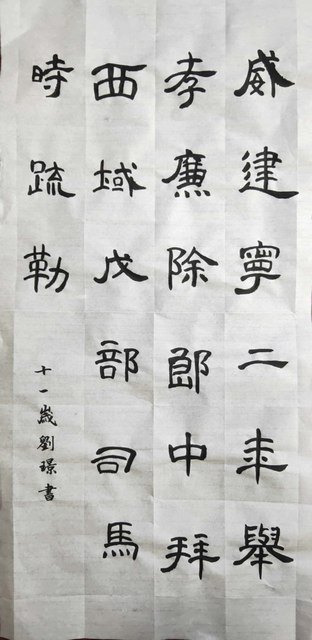 威建寧二年舉
孝廉除郎中拜
西域戊部司馬
時疏勒
十一歲劉璟書